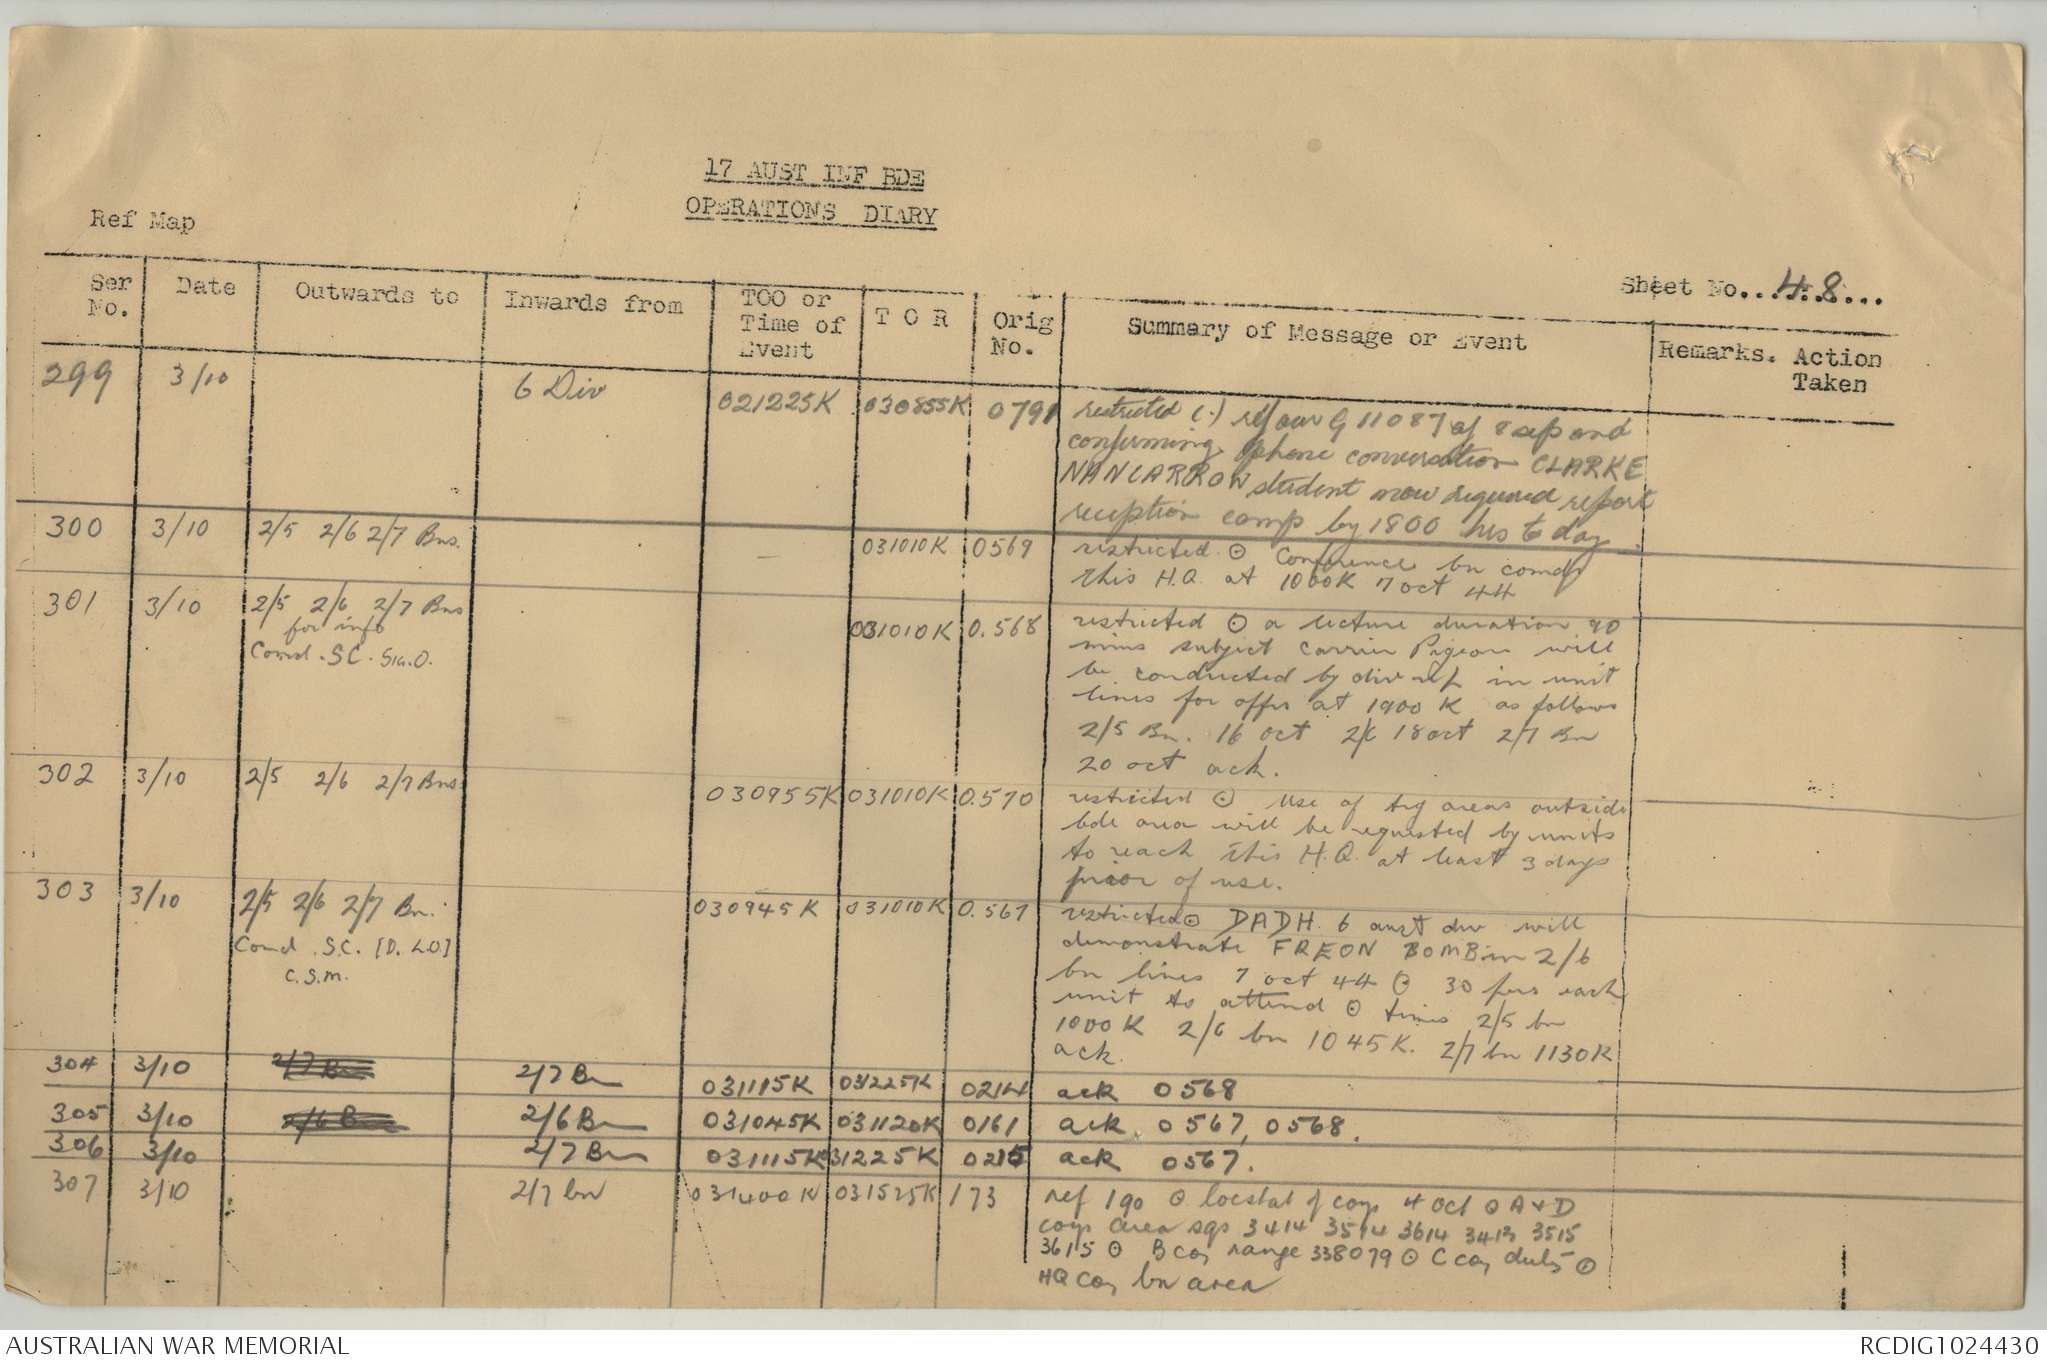 17 AUST INF BDE
OPERATIONS DIARY
Ref Map
Sheet No...48...
Ser No. Date Outwards to Inwards from TOO or Time of Event T O R Orig No. Summary of Message or Event Remarks. Action Taken
299 3/10 6 Div 021225K 030855K 0791 restricted (.) ref our G 11087 of 8 sep and
confirming phone conversation CLARKE
NANCARROW student now required report
reception camp by 1800 hrs to day
300 3/10 2/5 2/6 2/7 Bns. 031010K 0569 restricted ⊙ Conference bn comds
this H.Q. at 1000K 7 oct 44
301 3/10 2/5 2/6 2/7 Bns 031010K 0.568 restricted ⊙ a lecture duration 90
for info
Comd. S.C. Sig.O.
mins subject Carrier Pigeon will
be conducted by div rep in unit
lines for offrs at 1900 K as follows
2/5 Bn. 16 oct 2/6 18 oct 2/7 Bn
20 oct ack.
302 3/10 2/5 2/6 2/7 Bns 030955K 031010K 0.570 restricted ⊙ Use of trg areas outside
bde area will be requested by units
to reach this H.Q. at least 3 days
prior of use.
303 3/10 2/5 2/6 2/7 Bn. 030945K 031010K 0.567 restricted ⊙ DADH. 6 aust div will
Comd. S.C. [D. L.O]
C.S.M.
demonstrate FREON BOMB in 2/6
bn lines 7 oct 44 ⊙ 30 pers each
unit to attend ⊙ times 2/5 bn
1000K 2/6 bn 1045K. 2/7 bn 1130K
ack.
304 3/10 2/7 Bn 2/7 Bn 031115K 031225K 0214 ack 0568
305 3/10 2/6 Bn 2/6 Bn 031045K 031120K 0161 ack 0567, 0568.
306 3/10 2/7 Bn 031115K 31225K 0215 ack 0567.
307 3/10 2/7 bn 031400K 031525K 173 ref 190 ⊙ locstat of coys 4 Oct ⊙ A & D
coys area sqs 3414 3514 3614 3413 3515
3615 ⊙ B coy range 338079 ⊙ C coy duty ⊙
HQ coy bn area
AUSTRALIAN WAR MEMORIAL
RCDIG1024430